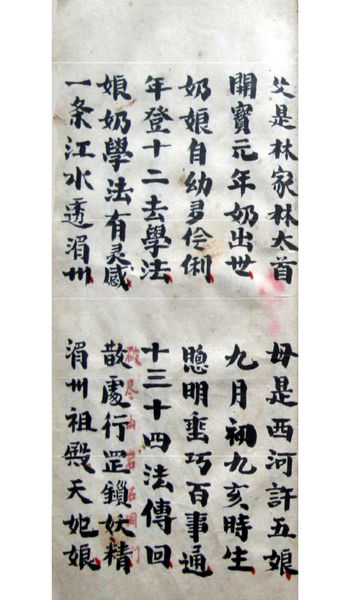 父是林家林大首 母是西河許五娘
開寶元年奶出世 九月初九亥時生
奶娘自幼多伶俐 聰明乖巧百事通
年登十二去學法 十三十四法傳回
娘奶學法有灵感 散處行罡鎖妖精
一条江水透湄州 湄州祖殿天妃娘